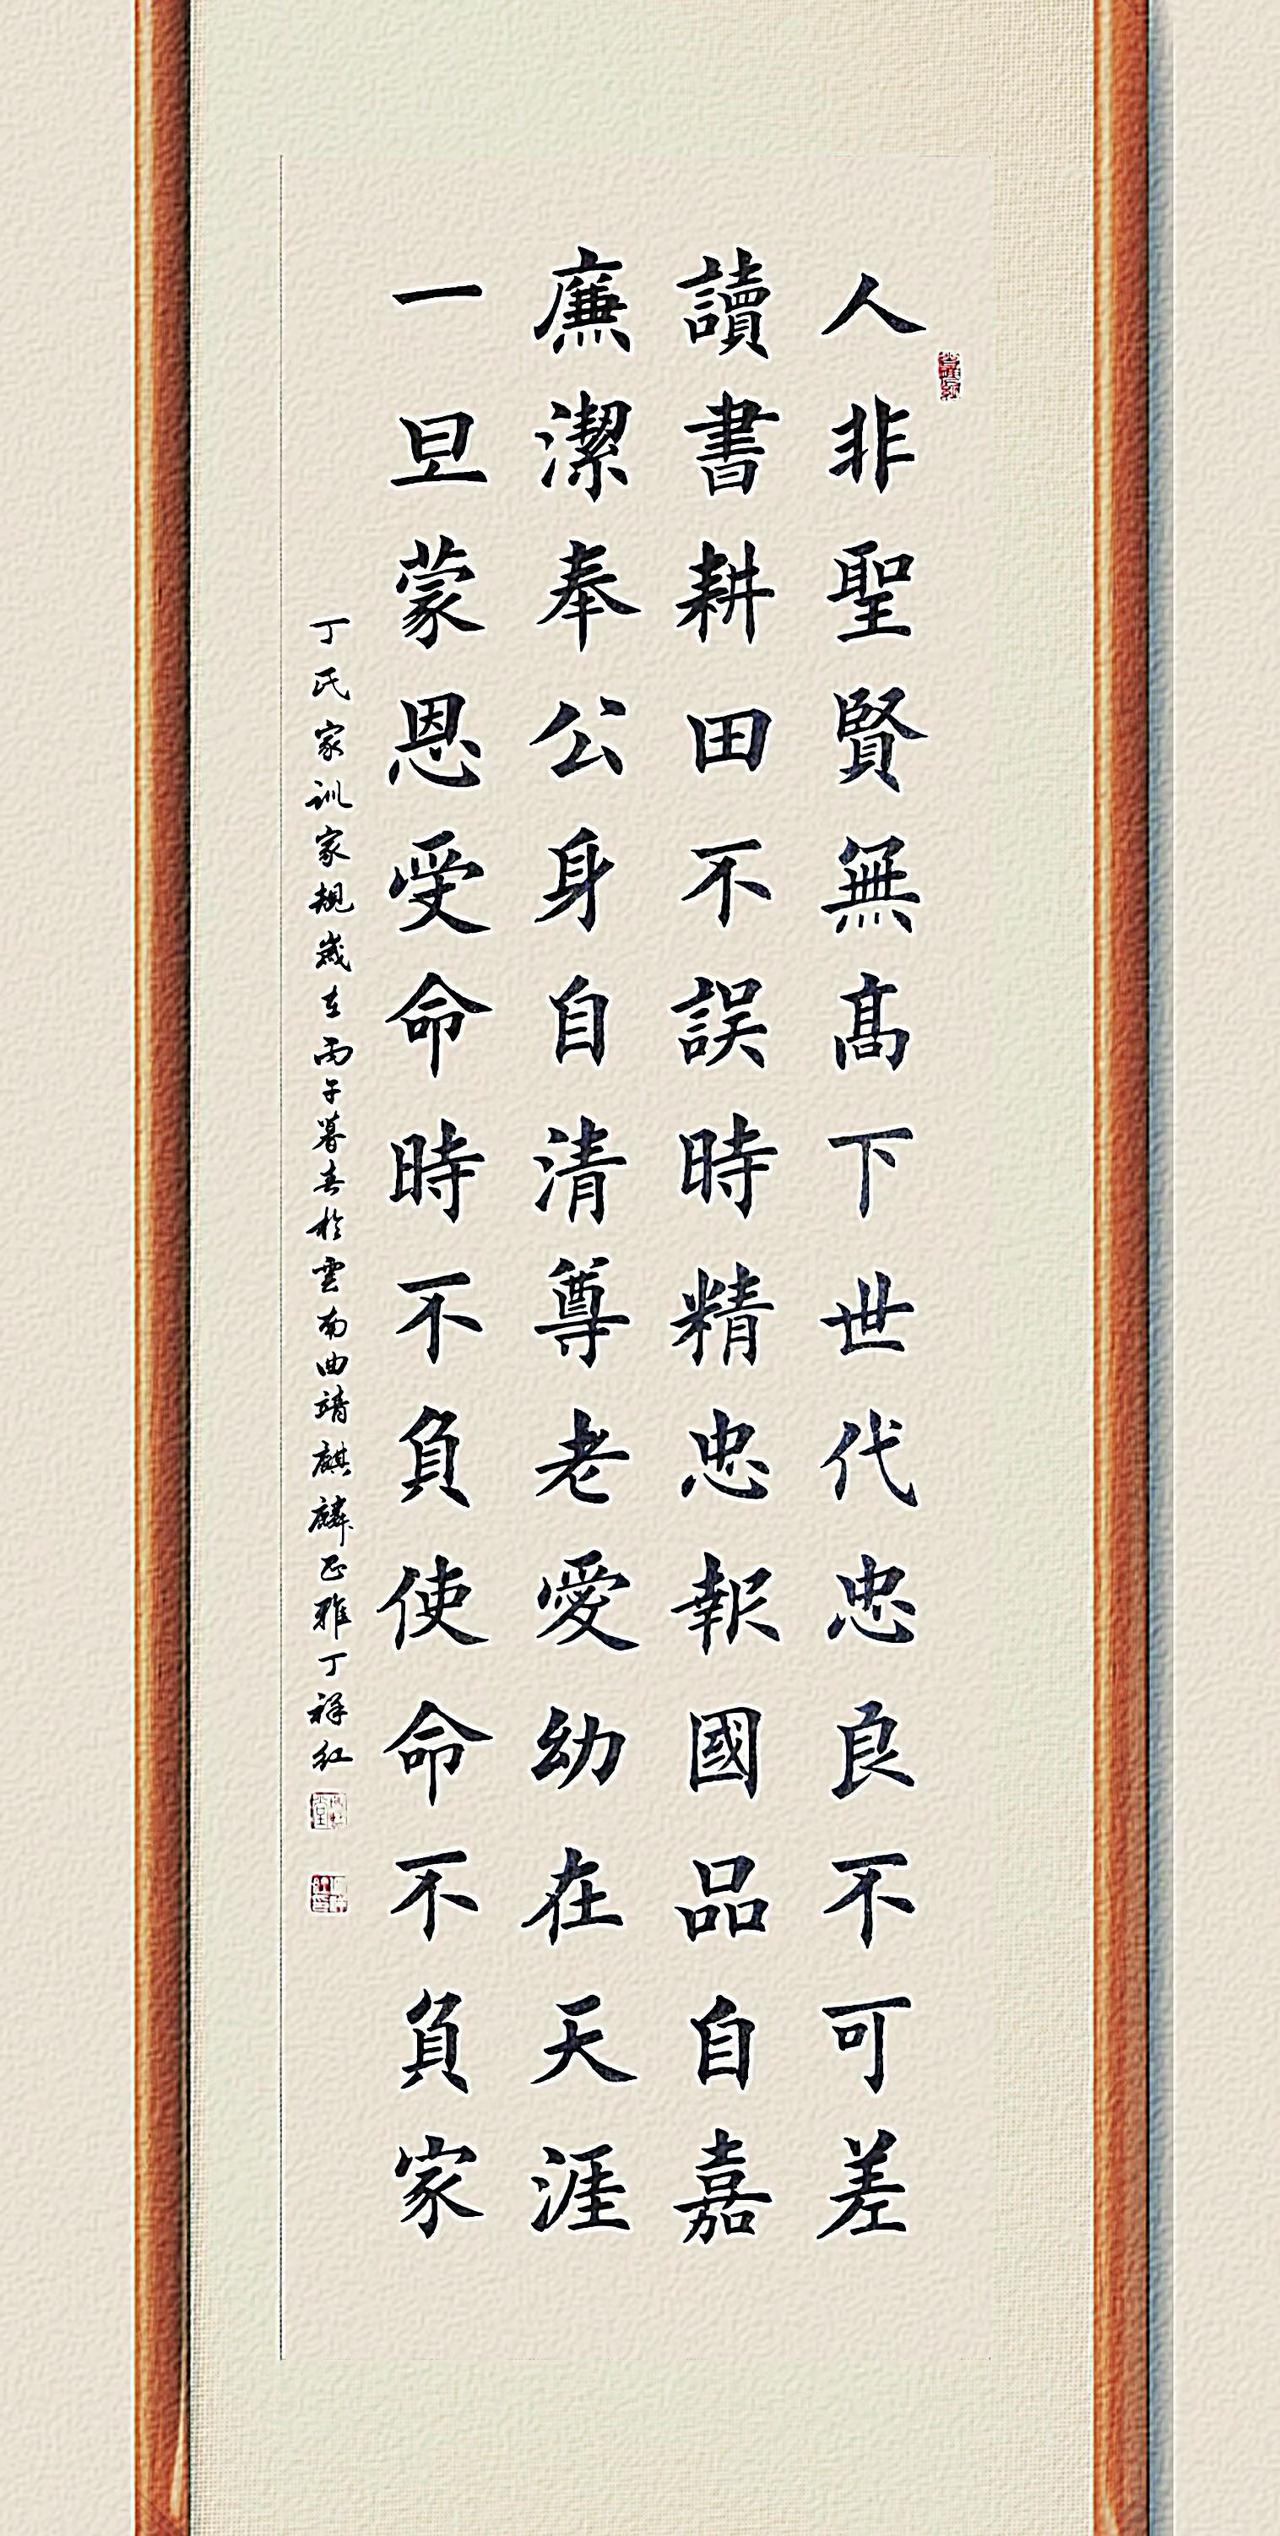 人非聖賢無髙下世代忠良不可差
讀書耕田不誤時精忠報國品自嘉
廉潔奉公身自清尊老愛幼在天涯
一旦蒙恩受命時不負使命不負家
丁氏家训家規歲在丙午暮春於雲南曲靖麒麟正雅丁祥红